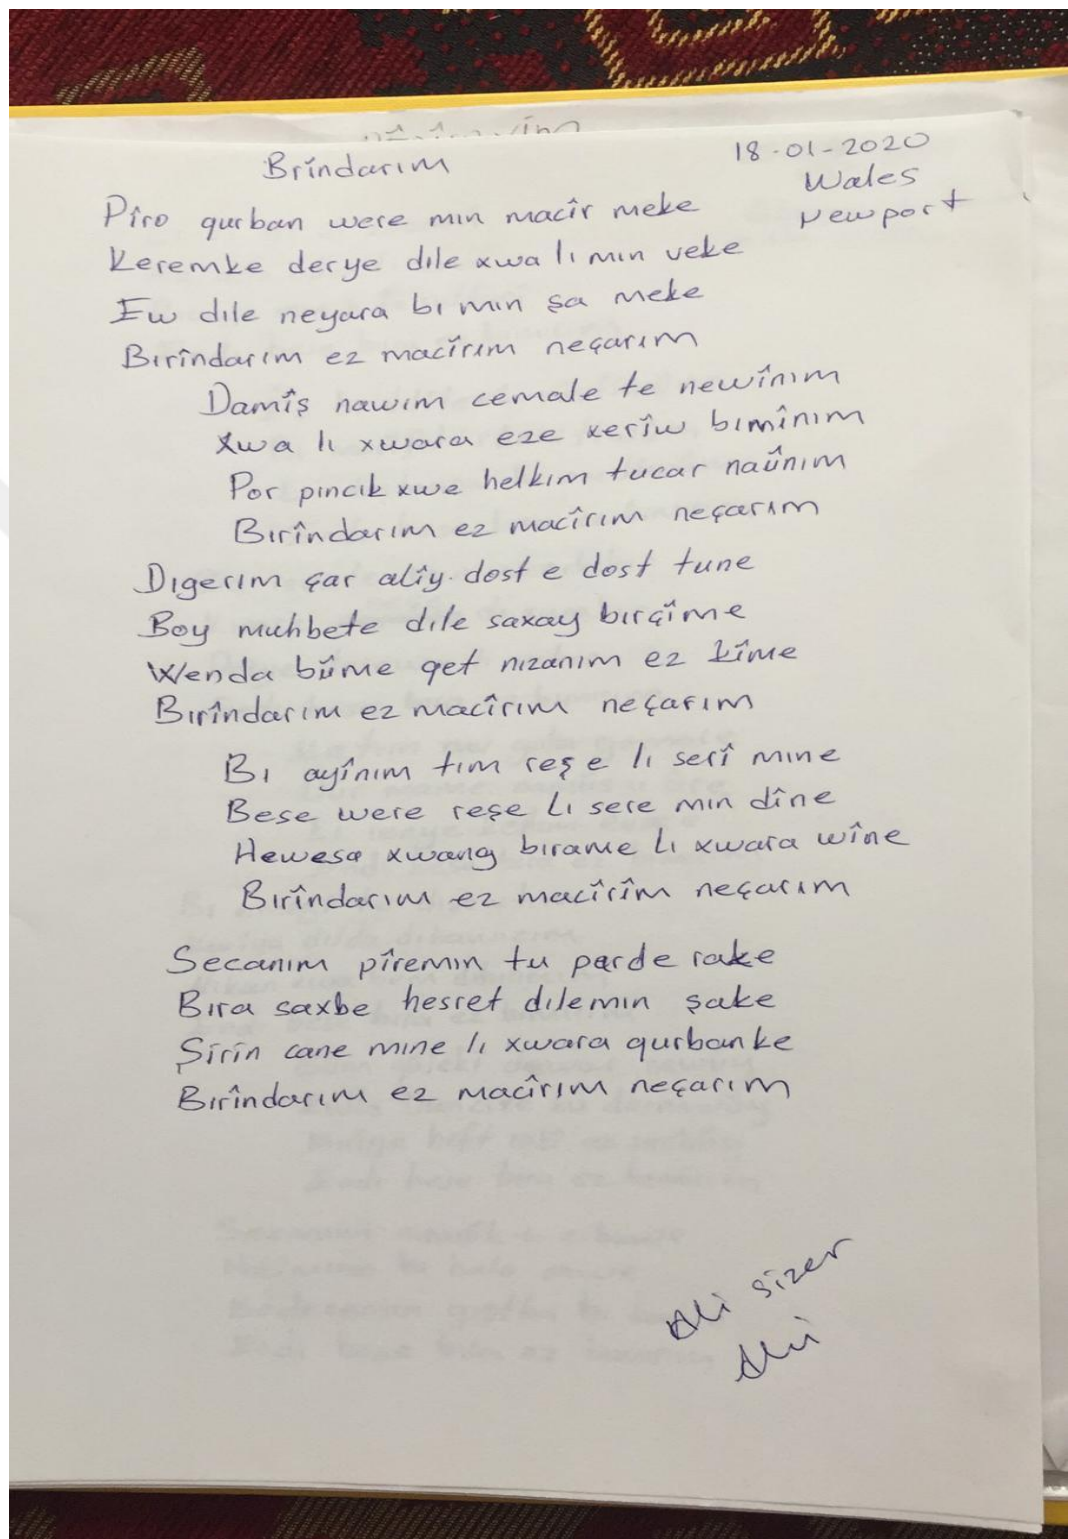 Brîndarım
18-01-2020
Wales
Newport
Pîro qurban were mın macîr meke
Keremke derye dıle xwa lı mın veke
Ew dıle neyara bı mın şa meke
Bırîndarım ez macîrım neçarım
Damîş nawım cemale te newînım
Xwa lı xwara eze xerîw bımînım
Por pıncık xwe helkım tucar naûnım
Bırîndarım ez macîrım neçarım
Dıgerım çar alîy dost e dost tune
Boy muhbete dıle saxay bırçîme
Wenda bûme qet nızanım ez kîme
Bırîndarım ez macîrım neçarım
Bı ayînım tım reş e lı serî mıne
Bese were reşe Lı sere mın dîne
Hewesa xwang bırame Lı xwara wîne
Bırîndarım ez macîrîm neçarım
Secanım pîremın tu perde rake
Bıra saxbe hesret dılemın şake
Şirin cane mıne lı xwara qurbanke
Bırîndarım ez macîrım neçarım
Ali Sizer
Ali